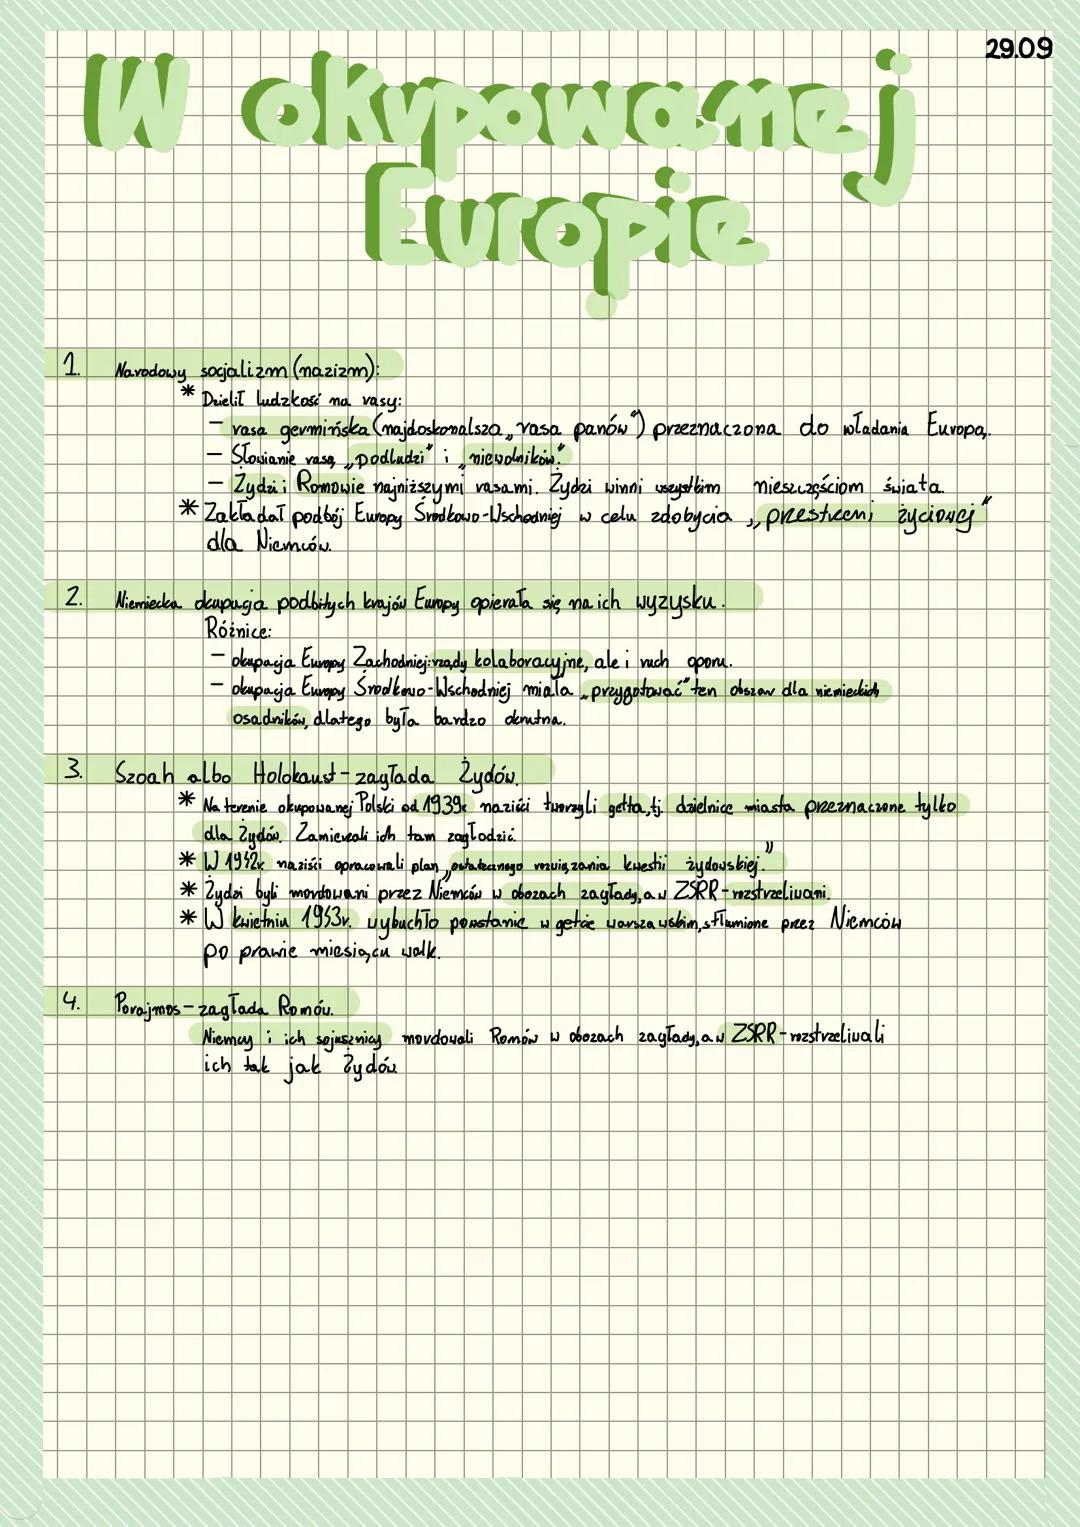 29.09
W okupowanej
Europie
1. Narodowy socjalizm (nazizm):
* Dzielił ludzkość na rasy:
- rasa germińska (najdoskonalsza „rasa panów") przeznaczona do władania Europą.
- Słowianie rasą „podludzi" i „niewolników."
- Żydzi i Romowie najniższymi rasami. Żydzi winni wszystkim nieszczęściom świata.
* Zakładał podbój Europy Środkowo-Wschodniej w celu zdobycia „przestrzeni życiowej"
dla Niemców.
2. Niemiecka okupacja podbitych krajów Europy opierała się na ich wyzysku.
Różnice:
- okupacja Europy Zachodniej: rządy kolaboracyjne, ale i ruch oporu.
- okupacja Europy Środkowo-Wschodniej miała „przygotować" ten obszar dla niemieckich
osadników, dlatego była bardzo okrutna.
3. Szoah albo Holokaust - zagłada Żydów.
* Na terenie okupowanej Polski od 1939r. naziści tworzyli getta, tj. dzielnice miasta przeznaczone tylko
dla Żydów. Zamierzali ich tam zagłodzić.
* W 1942r. naziści opracowali plan „ostatecznego rozwiązania kwestii żydowskiej."
* Żydzi byli mordowani przez Niemców w obozach zagłady, a w ZSRR - rozstrzeliwani.
* W kwietniu 1943r. wybuchło powstanie w getcie warszawskim, stłumione przez Niemców
po prawie miesiącu walk.
4. Porajmos - zagłada Romów.
Niemcy i ich sojusznicy mordowali Romów w obozach zagłady, a w ZSRR - rozstrzeliwali
ich tak jak Żydów